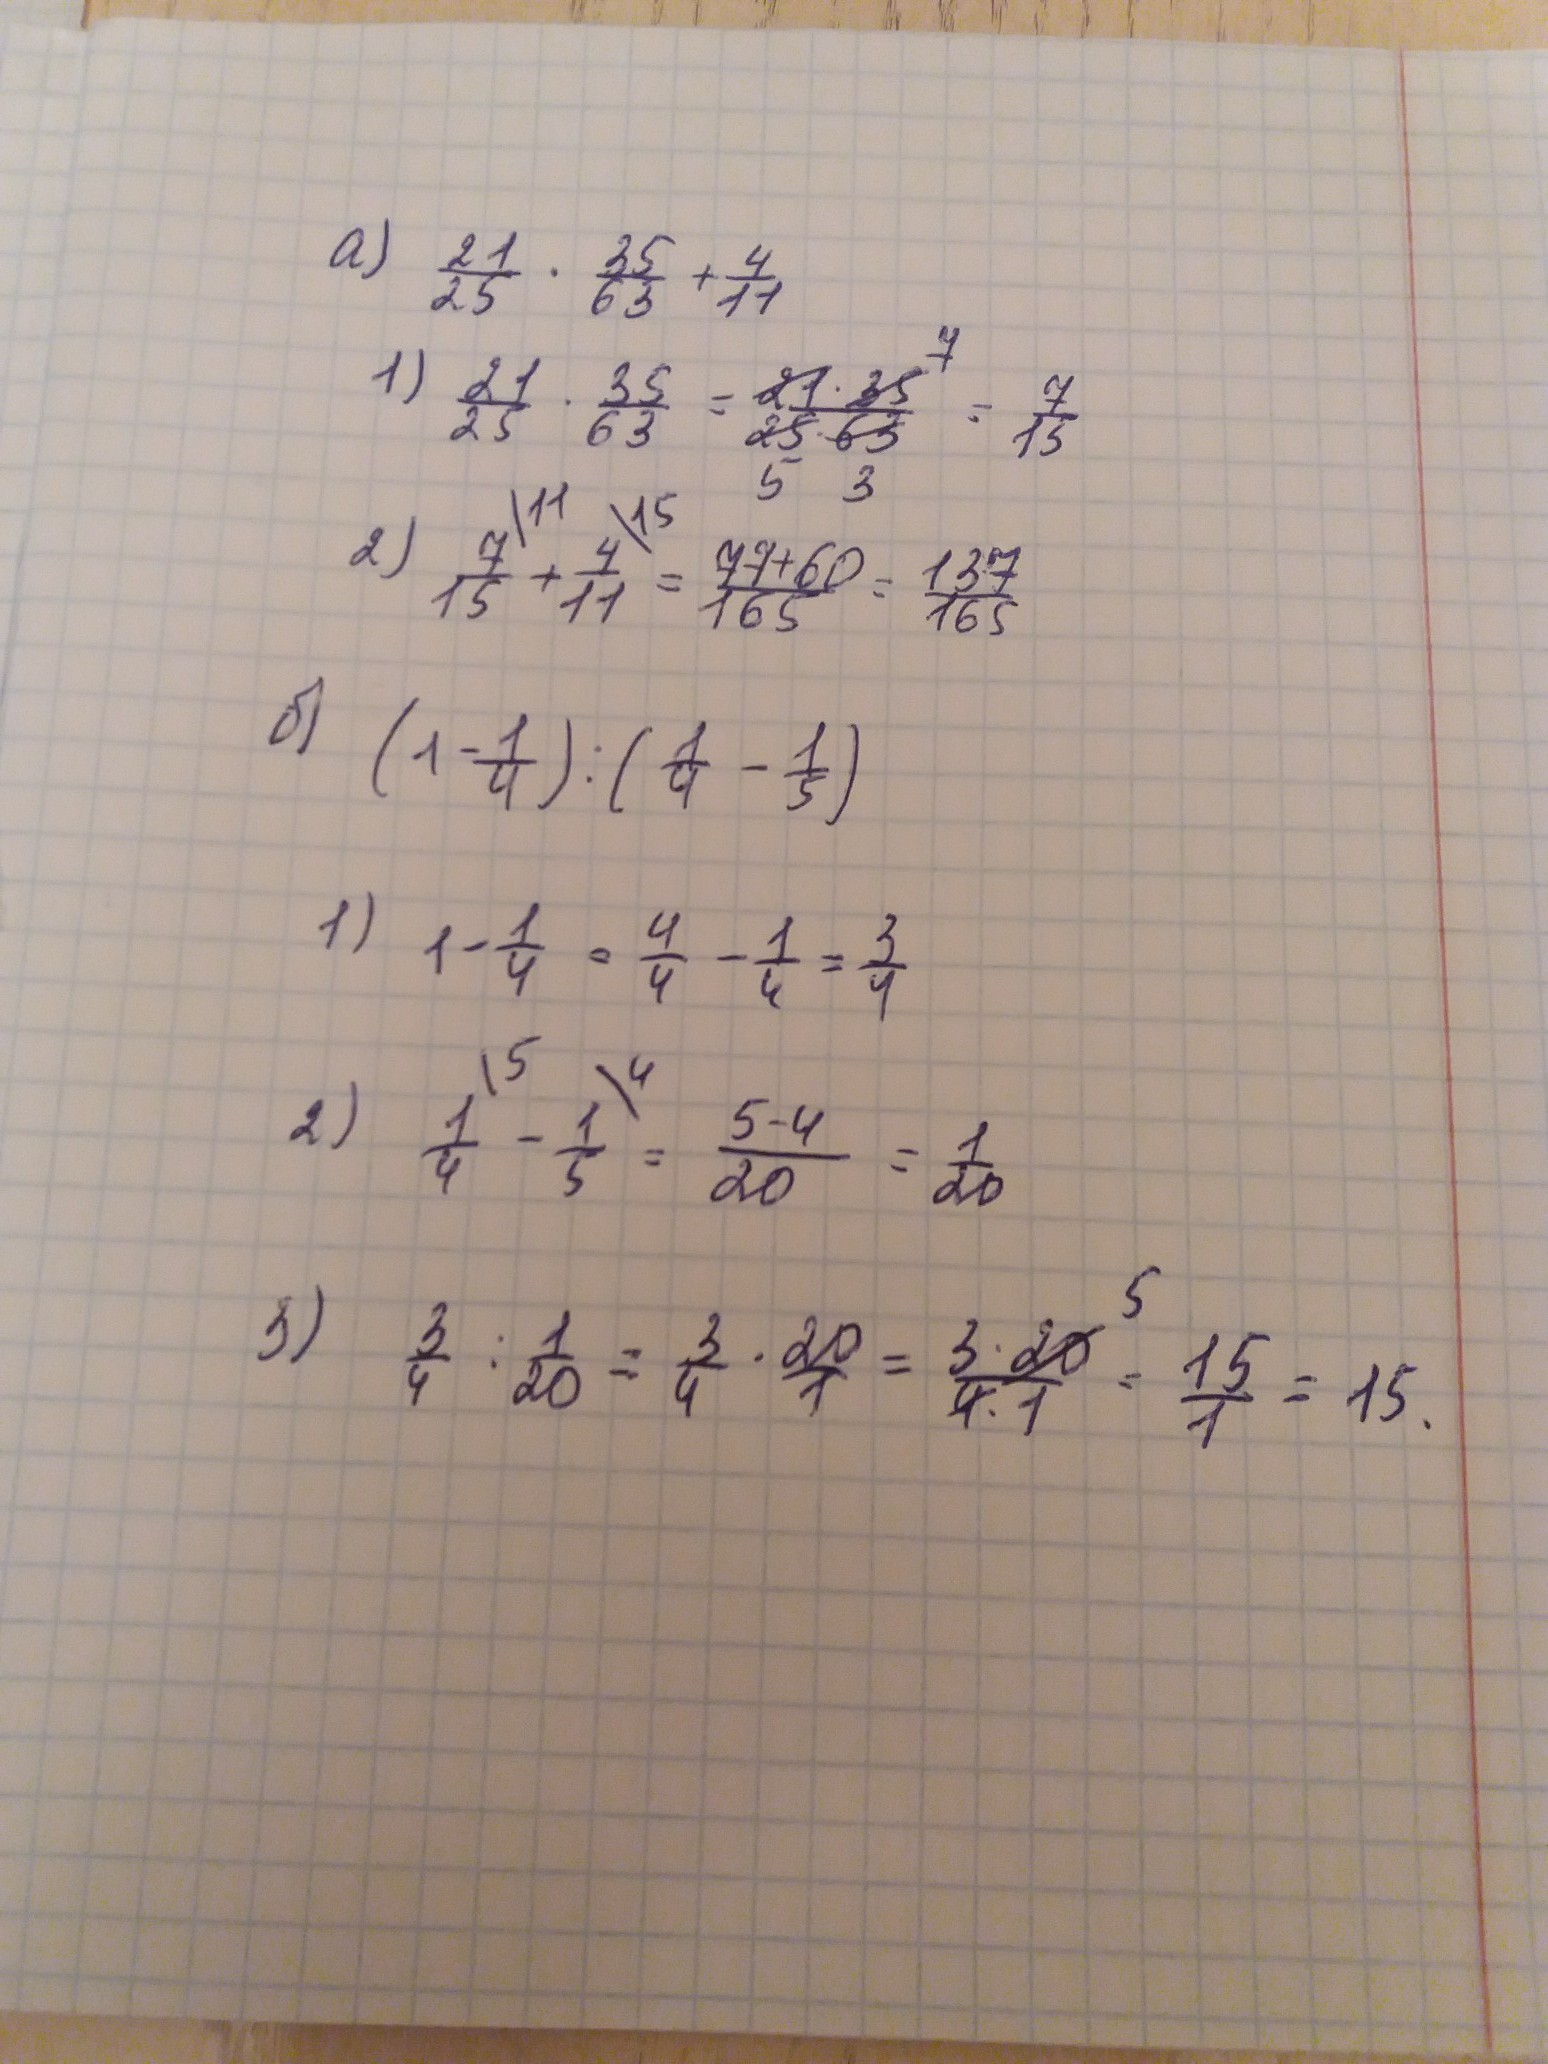 а) 21/25 · 35/63 + 4/11
1) 21/25 · 35/63 = 21·35/25·63 7 5 3 = 7/15
2) 7/15 \11 + 4/11 \15 = 77+60/165 = 137/165
б) (1 - 1/4) : (1/4 - 1/5)
1) 1 - 1/4 = 4/4 - 1/4 = 3/4
2) 1/4 \5 - 1/5 \4 = 5-4/20 = 1/20
3) 3/4 : 1/20 = 3/4 · 20/1 = 3·20/4·1 5 = 15/1 = 15.